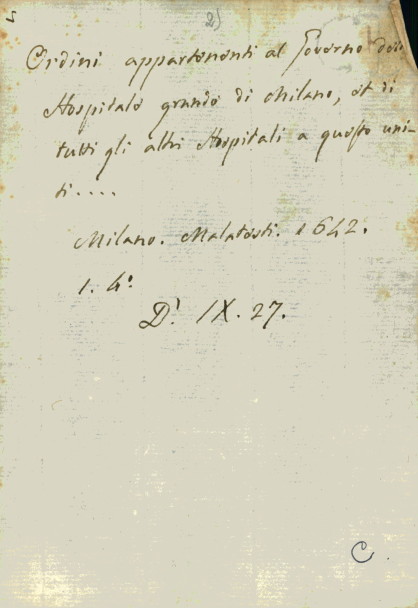 2)
Ordini appartenenti al Governo dell
Hospitale grande di Milano, et di
tutti gli altri Hospitali a questo uni-
ti....
Milano. Malatesti. 1642.
1. 4.º
D. IX. 27.
C.